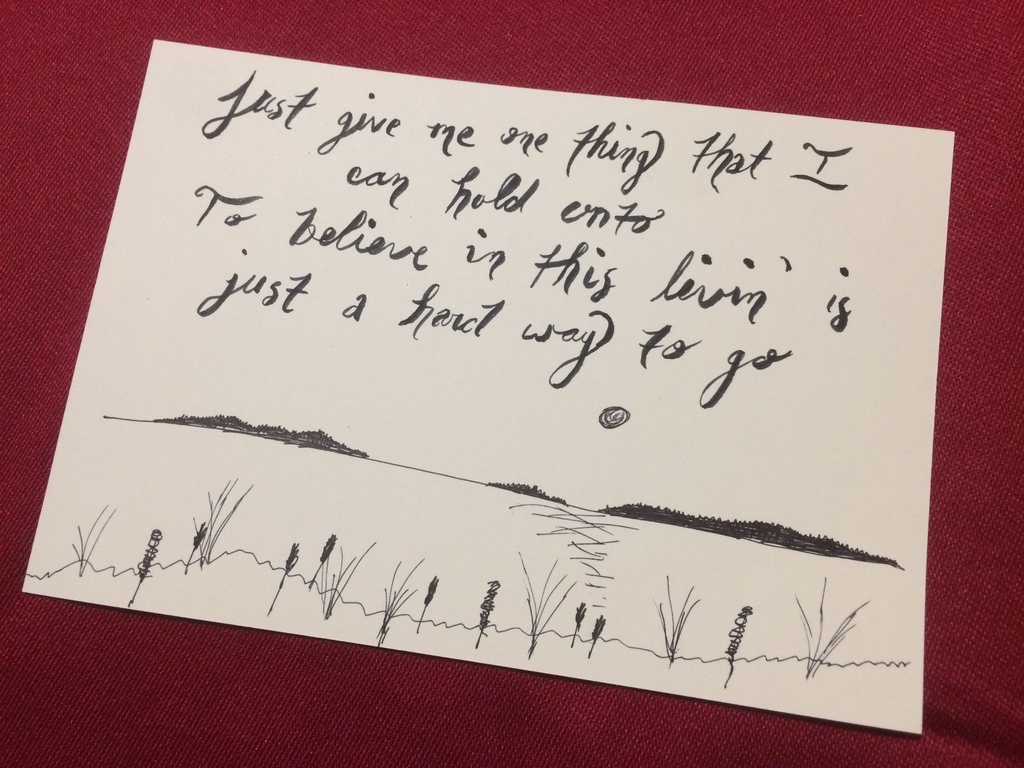 Just give me one thing that I
can hold onto
To believe in this livin' is
just a hard way to go